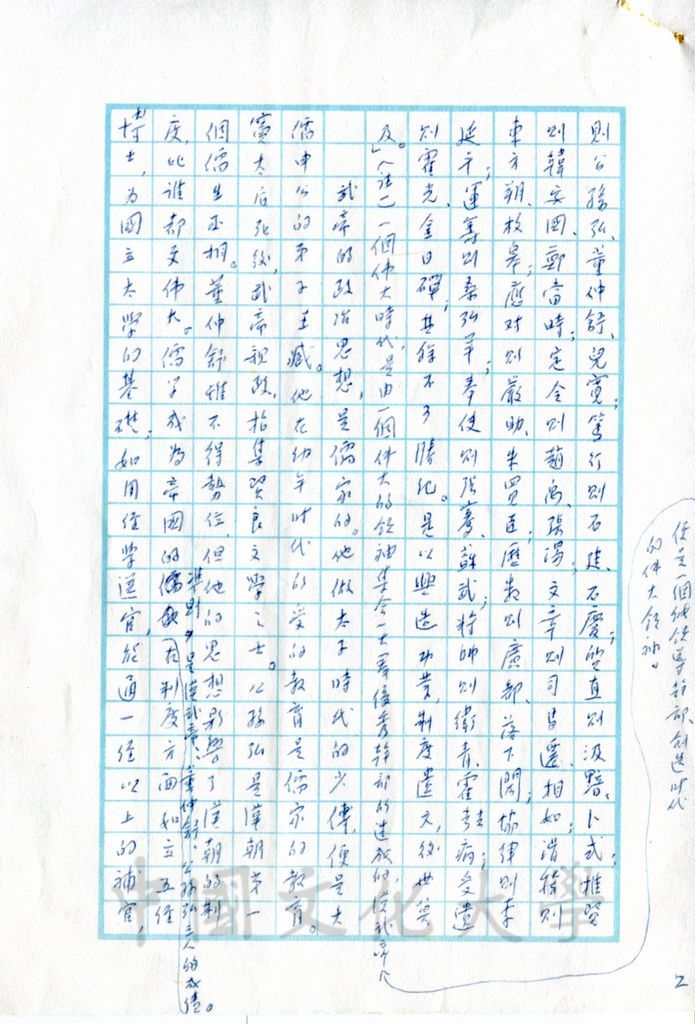 則公孫弘、董仲舒、兒寬；篤行則石建、石慶；質直則汲黯、卜式；推賢
則韓安國、鄭當時；定令則趙禹、張湯；文章則司馬遷、相如；滑稽則
東方朔、枚皋；應對則嚴助、朱買臣；歷數則唐都、落下閎；協律則李
延年；運籌則桑弘羊；奉使則張騫、蘇武；將帥則衛青、霍去病；受遺
則霍光、金日磾；其餘不可勝紀。是以興造功業，制度遺文，後世莫
及。」（註二）一個偉大時代，是由一個偉大的領袖集合一大羣優秀幹部所造成的，漢武帝
便是一個能領導幹部、創造時代
的偉大領袖。
武帝的政治思想，是儒家的。他做太子時代的少傅，便是大
儒申公的弟子王臧。他在幼年時代所受的教育是儒家的教育。
竇太后死後，武帝親政，招集賢良文學之士。公孫弘是漢朝第一
個儒生丞相。董仲舒雖不得勢位，但他的思想影響了漢朝的制
度，比誰都更偉大。儒學成為帝國的準則，是漢武帝、董仲舒、公孫弘三人的功績。
在制度方面如立五經
博士，為國立太學的基礎；如用經學選官，能通一經以上的補官，
2
中國文化大學